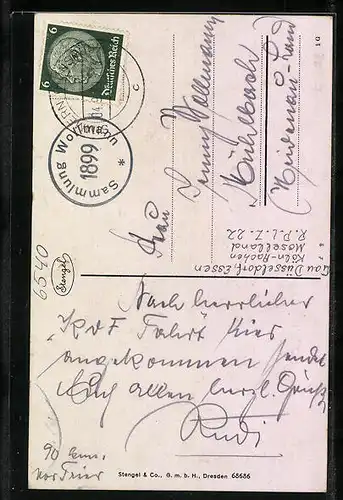 6
Deutsches Reich
6
Sammlung Wollmann
1899
*
c
1 G
Frau
Jenny Wollmann
Mühlbach
Gau Düsseldorf, Essen
Köln-Aachen
Moselland
R.P.L.Z. 22
6540
Stengel
Nach herrlicher
"KdF Fahrt" hier
angekommen sendet
Euch allen herzl. Grüße
Rudi
vor Trier
Stengel & Co., G. m. b. H., Dresden 68686